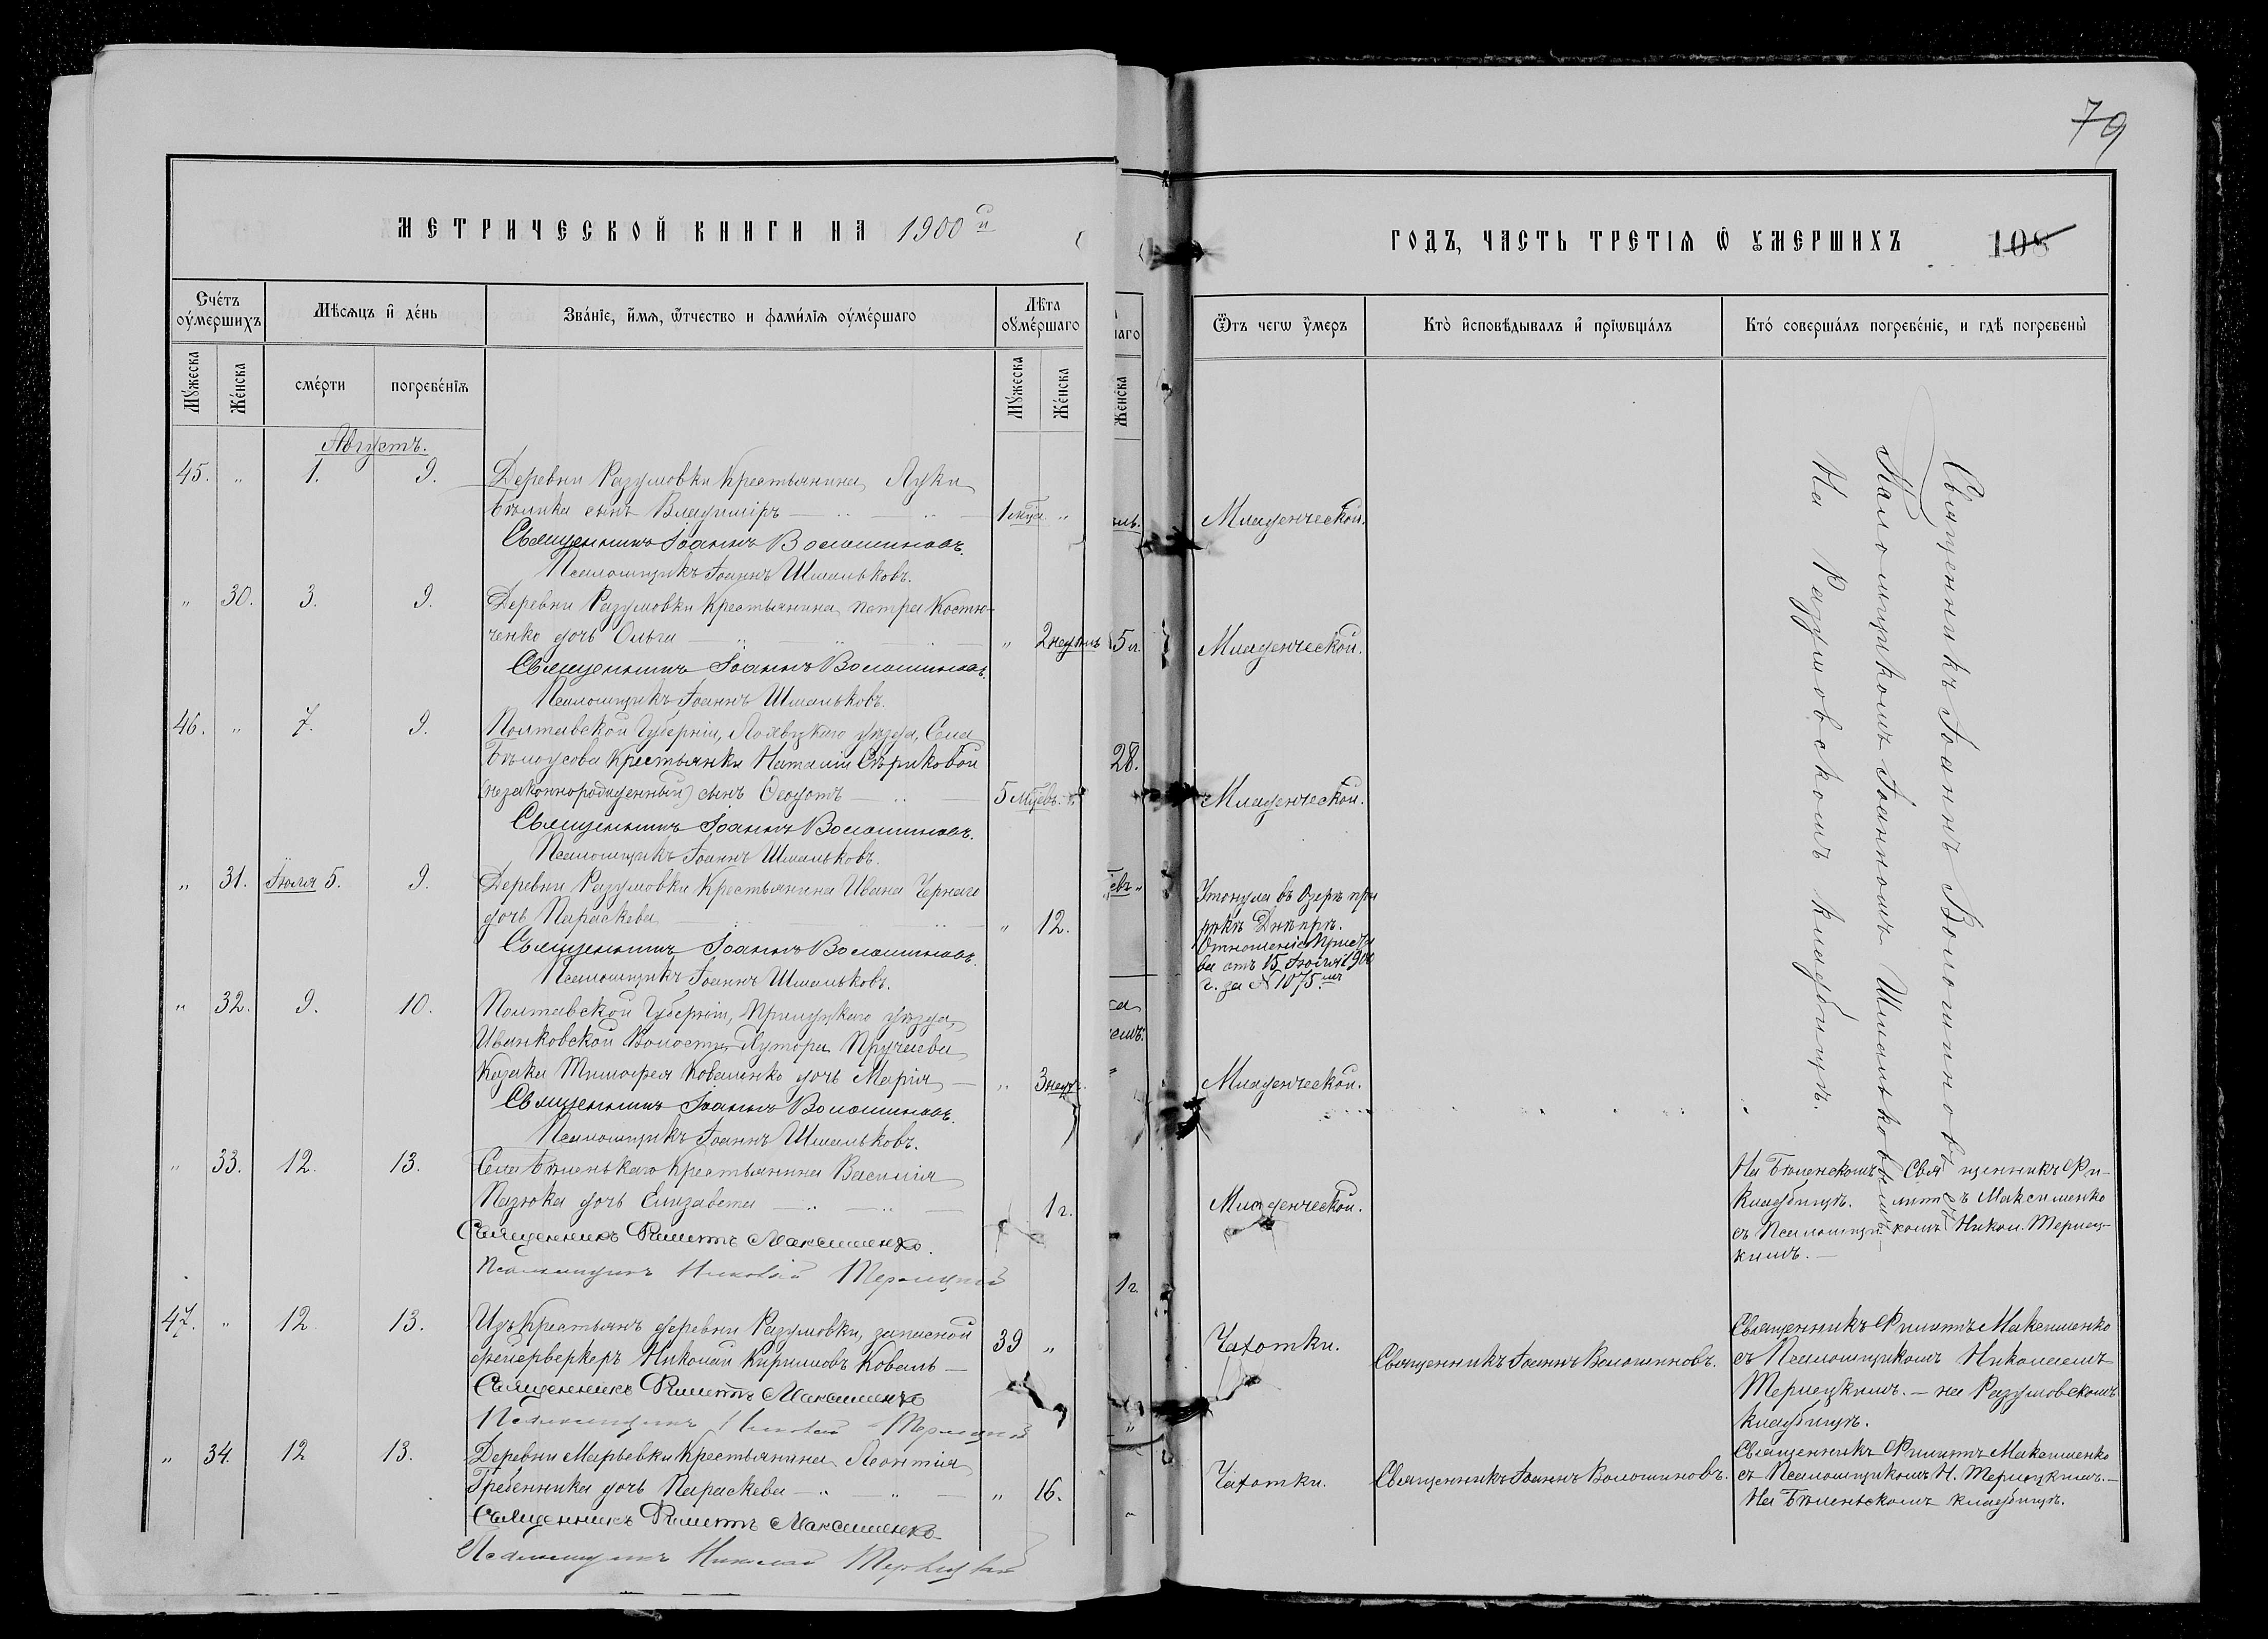 79
МЕТРИЧЕСКОЙ КНИГИ НА 1900й
ГОДЪ, ЧАСТЬ ТРЕТІѦ Ѿ ОУМЕРШИХЪ
108
Счéтъ оумершихъ
Мѣсѧцъ и день
Званіе, имѧ, ѿчество и фамиліѧ оумершаго
Лѣта оумершаго
Мужеска
Женска
смерти
погребеніѧ
Мужеска
Женска
Женска
Ѿтъ чегѡ умеръ
Кто исповѣдывалъ и пріѡбщалъ
Кто совершалъ погребеніе, и гдѣ погребены
Августъ.
45. " 1. 9. Деревни Разумовки Крестьянина Луки
Бѣлика сынъ Владиміръ 1 мца "
Младенческой.
Священникъ Іоаннъ Волошиновъ.
Псаломщикъ Іоаннъ Шмальковъ.
" 30. 3. 9. Деревни Разумовки Крестьянина Петра Костю-
ченко дочь Ольга " 2 недѣль
5 л.
Младенческой.
Священникъ Іоаннъ Волошиновъ.
Псаломщикъ Іоаннъ Шмальковъ.
46. " 7. 9. Полтавской Губерніи, Лохвицкаго уѣзда, Села
Бѣлоусова Крестьянки Наталіи Сѣриковой
28.
(незаконнорожденный) сынъ Ѳеодотъ 5 мцевъ. "
Младенческой.
Священникъ Іоаннъ Волошиновъ.
Псаломщикъ Іоаннъ Шмальковъ.
" 31. Іюля 5. 9. Деревни Разумовки Крестьянина Ивана Чернаго
дочь Параскева " 12.
Утонула въ Озерѣ при
рѣкѣ Днѣпрѣ.
Отношеніе Приста
ва отъ 15 Іюля 1900
г. за № 1075.
Священникъ Іоаннъ Волошиновъ.
Псаломщикъ Іоаннъ Шмальковъ.
" 32. 9. 10. Полтавской Губерніи, Прилуцкаго уѣзда,
Иванковской Волости Хутора
Козака Тимофея Коваленко дочь Марія " 3 нед.
Младенческой.
Священникъ Іоаннъ Волошиновъ.
Псаломщикъ Іоаннъ Шмальковъ.
Священникъ Іоаннъ Волошиновъ
съ Псаломщикомъ Іоанномъ Шмальковымъ
На Разумовскомъ кладбищѣ.
" 33. 12. 13. Села Бѣленькаго Крестьянина Василія
Пазюка дочь Елизавета 1 г.
1 г.
Младенческой.
На Бѣленскомъ Священникъ Фи-
кладбищѣ. липпъ Максименко
съ Псаломщикомъ Никол. Терлец-
кимъ.
Священникъ Филиппъ Максименко.
Псаломщикъ Николай Терлецкій
47. " 12 13. Изъ Крестьянъ деревни Разумовки, запасной
фейерверкеръ Николай Кириловъ Коваль 39 "
Чахотки.
Священникъ Іоаннъ Волошиновъ.
Священникъ Филиппъ Максименко
съ Псаломщикомъ Николаемъ
Терлецкимъ. — на Разумовскомъ
кладбищѣ.
Священникъ Филиппъ Максименко
Псаломщикъ Николай Терлецкій
" 34. 12 13. Деревни Марьевки Крестьянина Леонтія
Гребенника дочь Параскева " 16.
Чахотки.
Священникъ Іоаннъ Волошиновъ.
Священникъ Филиппъ Максименко
съ Псаломщикомъ Н. Терлецкимъ. —
На Бѣленьскомъ кладбищѣ.
Священникъ Филиппъ Максименко
Псаломщикъ Николай Терлецкій